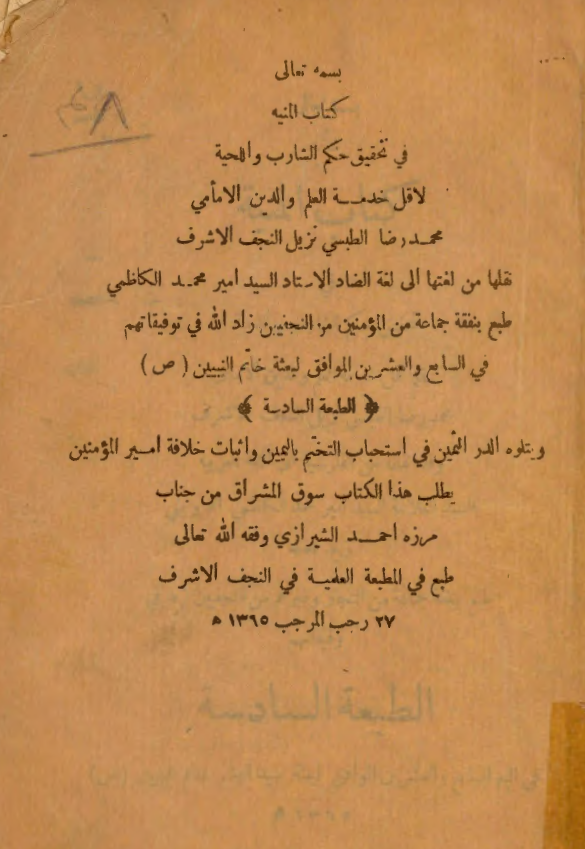 بسمه تعالى
كتاب المنيه
في تحقيق حكم الشارب واللحية
لاقل خدمة العلم والدين الامامي
محمد رضا الطبسي نزيل النجف الاشرف
نقلها من لغتها الى لغة الضاد الاستاد السيد امير محمد الكاظمي
طبع بنفقة جماعة من المؤمنين من النجفيين زاد الله في توفيقاتهم
في السابع والعشرين الموافق لبعثة خاتم النبيين ( ص )
﴿ الطبعة السادسة ﴾
ويتلوه الدر الثمين في استحباب التختم باليمين واثبات خلافة امير المؤمنين
يطلب هذا الكتاب سوق المشراق من جناب
مرزه احمد الشيرازي وفقه الله تعالى
طبع في المطبعة العلمية في النجف الاشرف
٢٧ رجب المرجب ١٣٦٥ ه